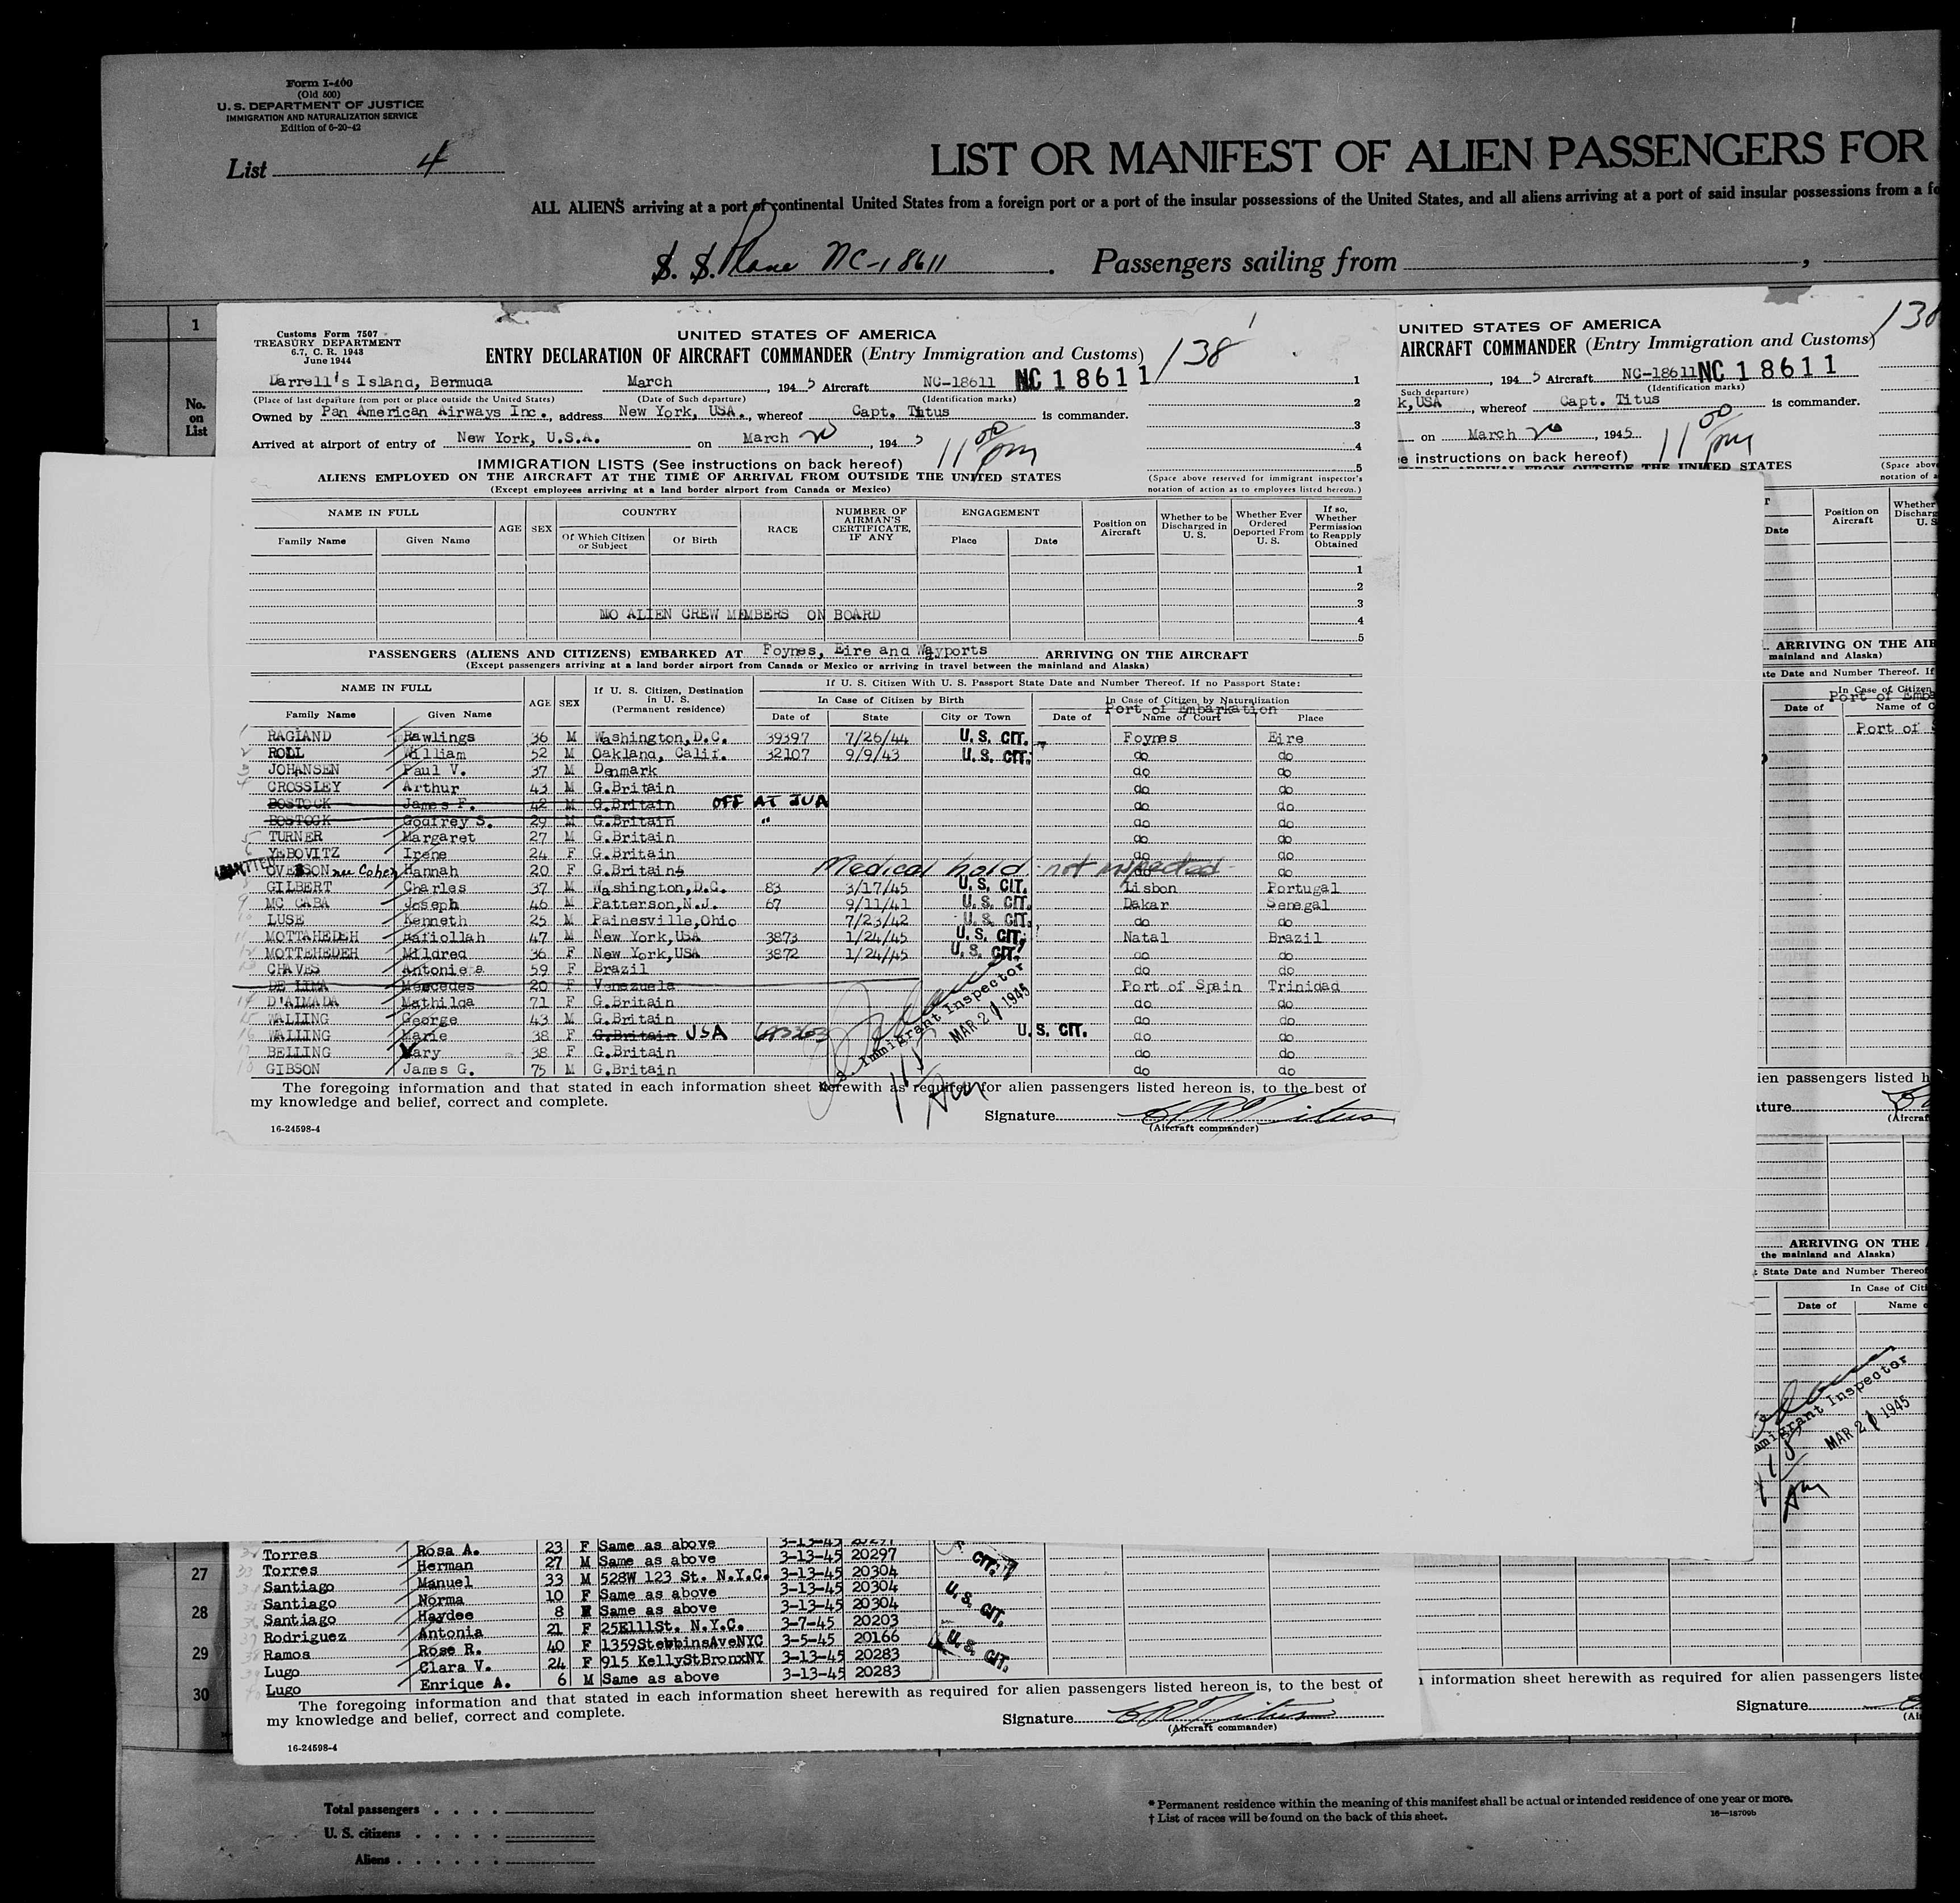 Form I-400
(Old 500)
U. S. DEPARTMENT OF JUSTICE
IMMIGRATION AND NATURALIZATION SERVICE
Edition of 6-20-42
List 4
LIST OR MANIFEST OF ALIEN PASSENGERS FOR
ALL ALIENS arriving at a port of continental United States from a foreign port or a port of the insular possessions of the United States, and all aliens arriving at a port of said insular possessions from a fo
S. S. Plane NC-18611. Passengers sailing from ,
1
No. on List
Customs Form 7507
TREASURY DEPARTMENT
6.7, C. R. 1943
June 1944
UNITED STATES OF AMERICA
ENTRY DECLARATION OF AIRCRAFT COMMANDER (Entry Immigration and Customs) 138
Darrell's Island, Bermuda March , 1945 Aircraft NC-18611 NC 18611 1
(Place of last departure from port or place outside the United States) (Date of Such departure) (Identification marks) 2
Owned by Pan American Airways Inc., address New York, USA., whereof Capt. Titus is commander. 3
Arrived at airport of entry of New York, U.S.A. on March 20, 1945 11 00 pm 4
IMMIGRATION LISTS (See instructions on back hereof) 5
ALIENS EMPLOYED ON THE AIRCRAFT AT THE TIME OF ARRIVAL FROM OUTSIDE THE UNITED STATES
(Except employees arriving at a land border airport from Canada or Mexico)
(Space above reserved for immigrant inspector's notation of action as to employees listed hereon.)
NAME IN FULL AGE SEX COUNTRY RACE NUMBER OF AIRMAN'S CERTIFICATE, IF ANY ENGAGEMENT Position on Aircraft Whether to be Discharged in U. S. Whether Ever Ordered Deported From U. S. If so, Whether Permission to Reapply Obtained
Family Name Given Name Of Which Citizen or Subject Of Birth Place Date
1
2
3
NO ALIEN CREW MEMBERS ON BOARD 4
5
PASSENGERS (ALIENS AND CITIZENS) EMBARKED AT Foynes, Eire and Wayports ARRIVING ON THE AIRCRAFT
(Except passengers arriving at a land border airport from Canada or Mexico or arriving in travel between the mainland and Alaska)
NAME IN FULL AGE SEX If U. S. Citizen, Destination in U. S. (Permanent residence) If U. S. Citizen With U. S. Passport State Date and Number Thereof. If no Passport State:
In Case of Citizen by Birth In Case of Citizen by Naturalization
Port of Embarkation
Family Name Given Name Date of State City or Town Date of Name of Court Place
1 RAGLAND Rawlings 36 M Washington,D.C. 39397 7/26/44 U.S. CIT. Foynes Eire
2 ROLL William 52 M Oakland, Calif. 32107 9/9/43 U.S. CIT. do do
3 JOHANSEN Paul V. 37 M Denmark do do
4 CROSSLEY Arthur 43 M G.Britain do do
BOSTOCK James F. 42 M G.Britain OFF AT JUA do do
BOSTOCK Godfrey S. 29 M G.Britain " do do
5 TURNER Margaret 27 M G.Britain do do
6 YEBOVITZ Irene 24 F G.Britain do do
ADMITTED OVERSON nee Cohen Hannah 20 F G.Britain Medical hold - not inspected do do
GILBERT Charles 37 M Washington,D.C. 83 3/17/45 U.S. CIT. Lisbon Portugal
9 MC CABA Joseph 46 M Patterson,N.J. 67 9/11/41 U.S. CIT. Dakar Senegal
10 LUSE Kenneth 25 M Painesville,Ohio 7/23/42 U.S. CIT. do do
11 MOTTAHEDEH Rafiollah 47 M New York,USA 3873 1/24/45 U.S. CIT. Natal Brazil
12 MOTTEHEDEH Mildred 36 F New York,USA 3872 1/24/45 U.S. CIT. do do
13 CHAVES Antoniea 59 F Brazil do do
DE LIMA Mercedes 20 F Venezuela Port of Spain Trinidad
14 D'ALMADA Mathilda 71 F G.Britain do do
15 WALLING George 43 M G.Britain do do
16 WALLING Marie 38 F G.Britain USA U.S. CIT. do do
17 BELLING Mary 38 F G.Britain do do
18 GIBSON James G. 75 M G.Britain do do
U.S. Immigrant Inspector
MAR 21 1945
115 Am
The foregoing information and that stated in each information sheet herewith as required for alien passengers listed hereon is, to the best of
my knowledge and belief, correct and complete.
Signature
(Aircraft commander)
16-24598-4
UNITED STATES OF AMERICA 138
AIRCRAFT COMMANDER (Entry Immigration and Customs)
, 1945 Aircraft NC-18611 NC 18611
Such departure) (Identification marks)
k,USA, whereof Capt. Titus is commander.
on March 20, 1945 11 00 pm
e instructions on back hereof)
THE UNITED STATES
(Space above
notation of a
Date Position on Aircraft Whether Discharg U. S
ARRIVING ON THE AIR
mainland and Alaska)
te Date and Number Thereof. If
In Case of Citizen
Port of Emba
Date of Name of C
Port of S
ien passengers listed h
ture
(Aircraf
ARRIVING ON THE
the mainland and Alaska)
State Date and Number Thereof
In Case of Citi
Date of Name o
mmigrant Inspector
MAR 21 1945
115 Am
Torres Rosa A. 23 F Same as above 3-13-45 20297
27 Torres Herman 27 M Same as above 3-13-45 20297 CIT.
Santiago Manuel 33 M 528W 123 St. N.Y.C. 3-13-45 20304
28 Santiago Norma 10 F Same as above 3-13-45 20304 U.S. CIT.
Santiago Haydee 8 F Same as above 3-13-45 20304
Rodriguez Antonia 21 F 25E111St. N.Y.C. 3-7-45 20203
29 Ramos Rose R. 40 F 1359StebbinsAveNYC 3-5-45 20166 U.S. CIT.
Lugo Clara V. 24 F 915 KellyStBronxNY 3-13-45 20283
30 Lugo Enrique A. 6 M Same as above 3-13-45 20283
The foregoing information and that stated in each information sheet herewith as required for alien passengers listed hereon is, to the best of
my knowledge and belief, correct and complete.
Signature
(Aircraft commander)
16-24598-4
information sheet herewith as required for alien passengers liste
Signature
(Ai
Total passengers . . . .
U. S. citizens . . . . .
Aliens . . . . . .
* Permanent residence within the meaning of this manifest shall be actual or intended residence of one year or more.
† List of races will be found on the back of this sheet. 16—18709b